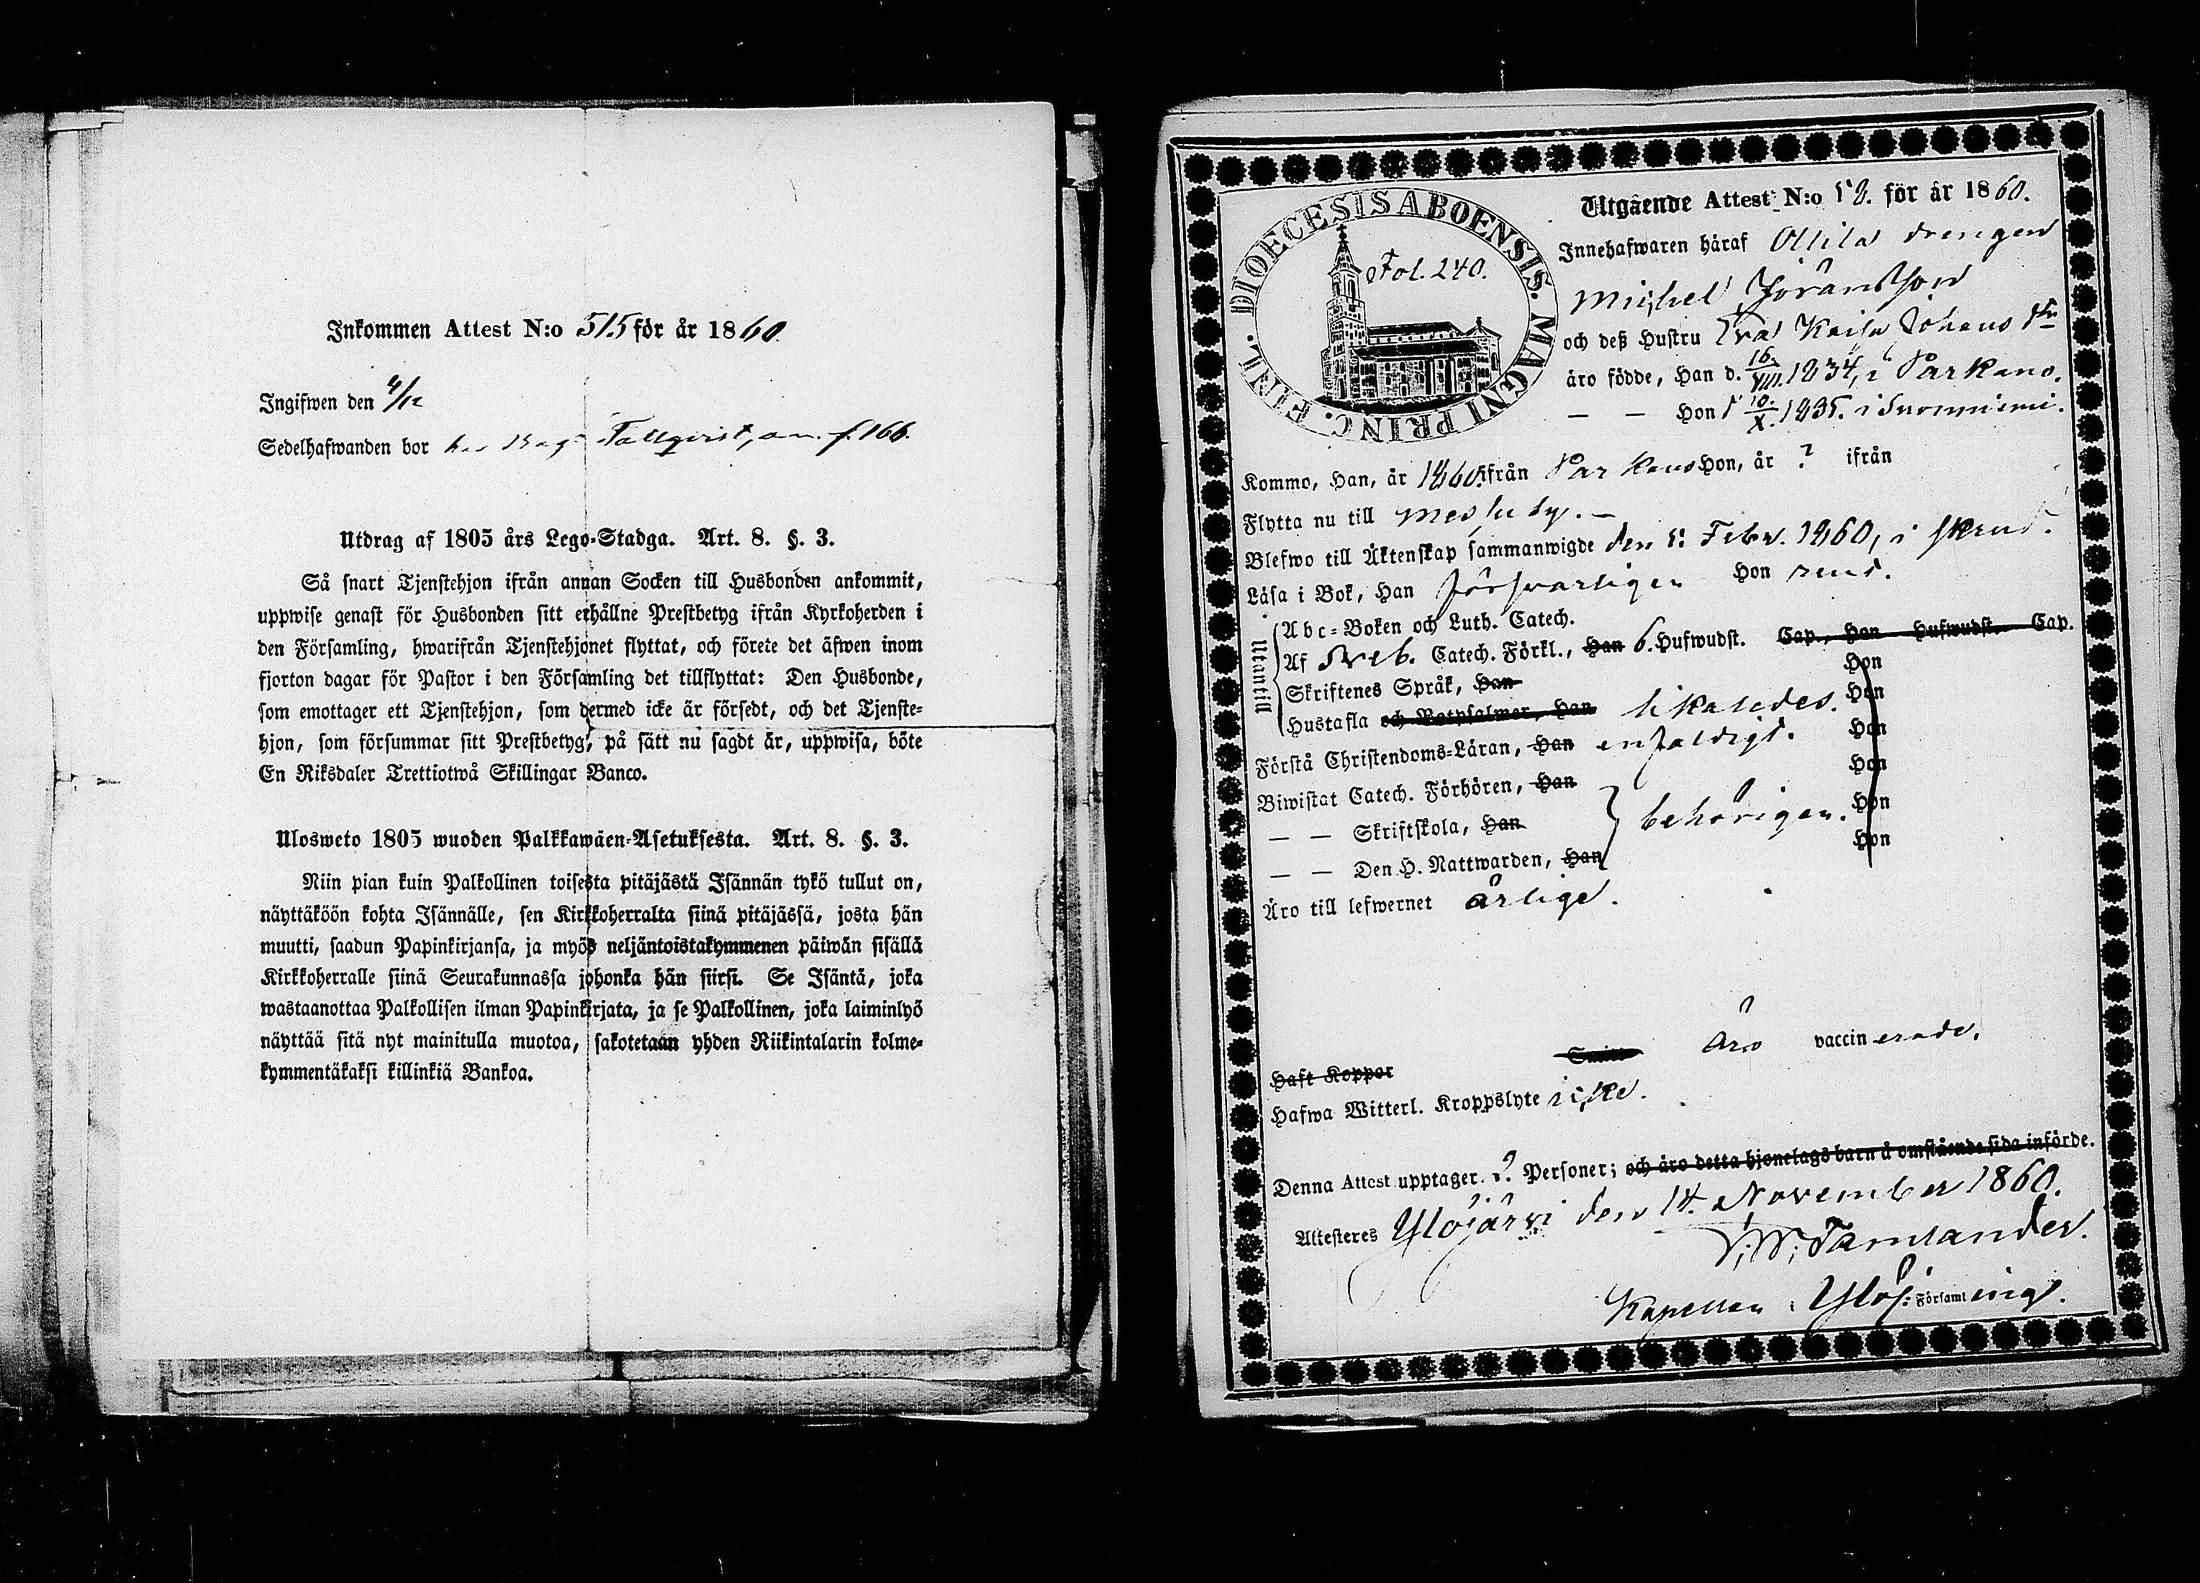 Inkommen Attest N:o 515 för år 1860.
Ingifwen den 4/12
Sedelhafwanden bor hos Bag. Tallqvist, f. 166.
Utdrag af 1805 års Lego-Stadga. Art. 8. §. 3.
Så snart Tjenstehjon ifrån annan Socken till Husbonden ankommit,
uppwise genast för Husbonden sitt erhållne Prestbetyg ifrån Kyrkoherden i
den Församling, hwarifrån Tjenstehjonet flyttat, och förete det äfwen inom
fjorton dagar för Pastor i den Församling det tillflyttat: Den Husbonde,
som emottager ett Tjenstehjon, som dermed icke är försedt, och det Tjenste-
hjon, som försummar sitt Prestbetyg, på sätt nu sagdt är, uppwisa, böte
En Riksdaler Trettiotwå Skillingar Banco.
Ulosweto 1805 wuoden Palkkawäen-Asetuksesta. Art. 8. §. 3.
Niin pian kuin Palkollinen toisesta pitäjästä Isännän tykö tullut on,
näyttäköön kohta Isännälle, sen Kirkkoherralta siinä pitäjässä, josta hän
muutti, saadun Papinkirjansa, ja myös neljäntoistakymmenen päiwän sisällä
Kirkkoherralle siinä Seurakunnassa johonka hän siirsi. Se Isäntä, joka
wastaanottaa Palkollisen ilman Papinkirjata, ja se Palkollinen, joka laiminlyö
näyttää sitä nyt mainitulla muotoa, sakotetaan yhden Riikintalarin kolme-
kymmentäkaksi killinkiä Bankoa.
DIOECESIS ABOENSIS. MAGNI PRINC. FINL.
Fol. 240.
Utgående Attest N:o för år 1860.
Innehafwaren häraf Ollila drengen
Michel Göransson
och deß Hustru Eva Kaisa Johans dtr
äro födde, Han d. 16/VIII. 1834, i Parkano.
— — Hon d 10/X. 1835. i Suoniemi.
Kommo, Han, år 1860 ifrån Parkano Hon, år ? ifrån
Flytta nu till Messuby. —
Blefwo till Äktenskap sammanwigde den Febr. 1860, i
Läsa i Bok, Han försvarligen Hon
Utantill
Abc-Boken och Luth. Catech.
Af Sveb. Catech. Förkl., Han 6. Hufwudst. Cap., Hon Hufwudst. Cap.
Skriftenes Språk, Han Hon
Hustafla och Botpsalmer, Han likaledes. Hon
Förstå Christendoms-Läran, Han enfaldigt. Hon
Biwistat Catech. Förhören, Han Hon
— — Skriftskola, Han behörigen. Hon
— — Den H. Nattwarden, Han Hon
Äro till lefwernet ärlige.
Haft Koppor Äro vaccinerade.
Hafwa Witterl. Kroppslyte icke.
Denna Attest upptager 2. Personer; och äro detta hjonelags barn å omstående sida införde.
Attesteres Ylöjärvi den 14. November 1860.
V. W. Tamlander.
Kapellan i Ylöj: Församling.